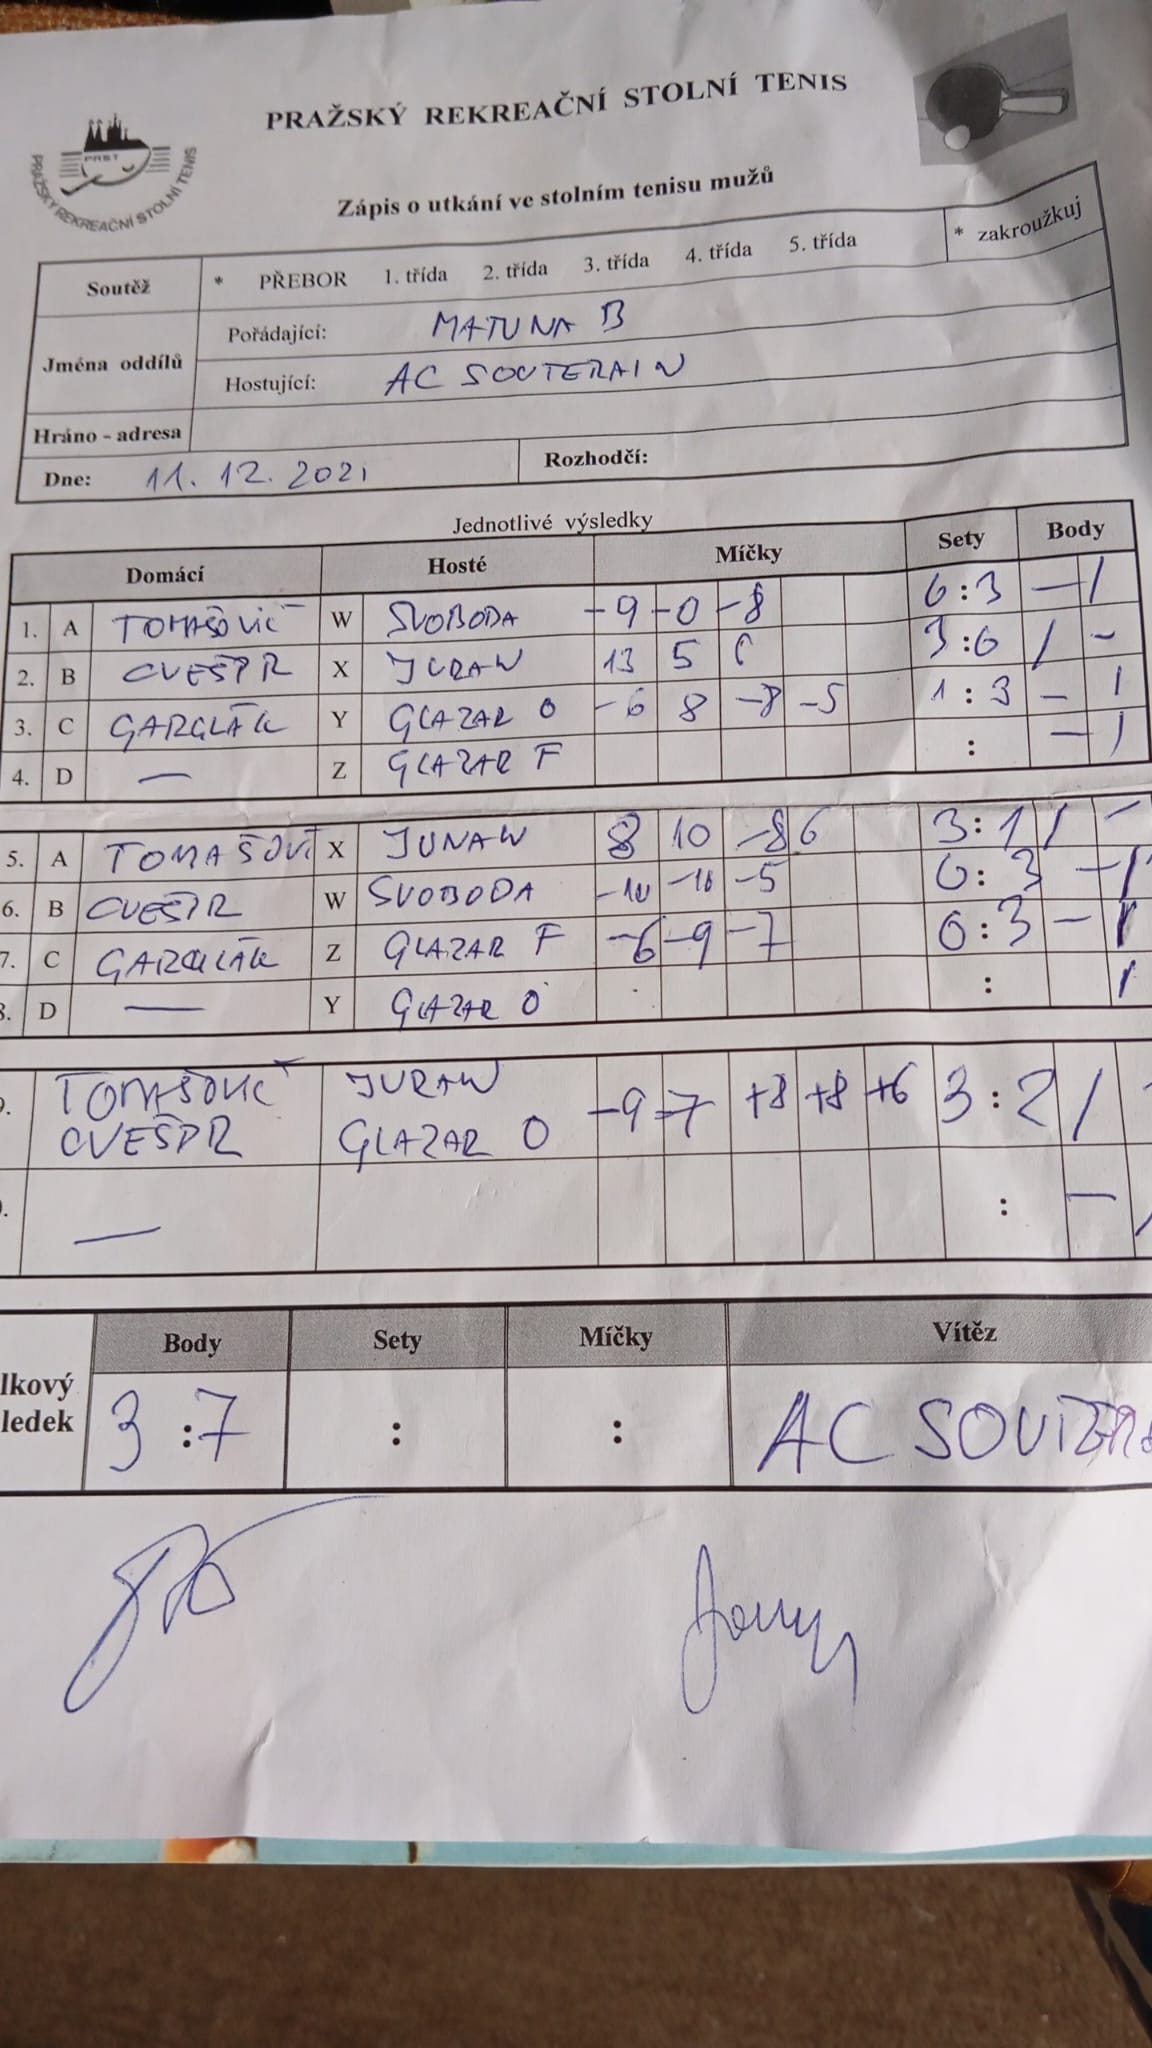 PRAŽSKÝ REKREAČNÍ STOLNÍ TENIS
PRST
PRAŽSKÝ REKREAČNÍ STOLNÍ TENIS
Zápis o utkání ve stolním tenisu mužů
Soutěž * PŘEBOR 1. třída 2. třída 3. třída 4. třída 5. třída * zakroužkuj
Jména oddílů
Pořádající: MATUNA B
Hostující: AC SOUTERAIN
Hráno - adresa
Dne: 11. 12. 2021 Rozhodčí:
Jednotlivé výsledky
Domácí Hosté Míčky Sety Body
1. A TOMAŠOVIČ W SVOBODA -9 -0 -8 0:3 - 1
2. B CVEŠPR X JURAN 13 5 6 3:0 1 -
3. C GARGLÁK Y GLAZAR O -6 8 -8 -5 1:3 - 1
4. D — Z GLAZAR F : - 1
5. A TOMAŠOVI X JUNAN 8 10 -8 6 3:1 1 -
6. B CVEŠPR W SVOBODA -10 -10 -5 0:3 - 1
7. C GARGLÁK Z GLAZAR F -6 -9 -7 0:3 - 1
8. D — Y GLAZAR O : 1
9. TOMAŠOVIČ JURAN -9 -7 +8 +8 +6 3:2 1
CVEŠPR GLAZAR O
— : -
Body Sety Míčky Vítěz
lkový
ledek 3:7 : : AC SOUTERA